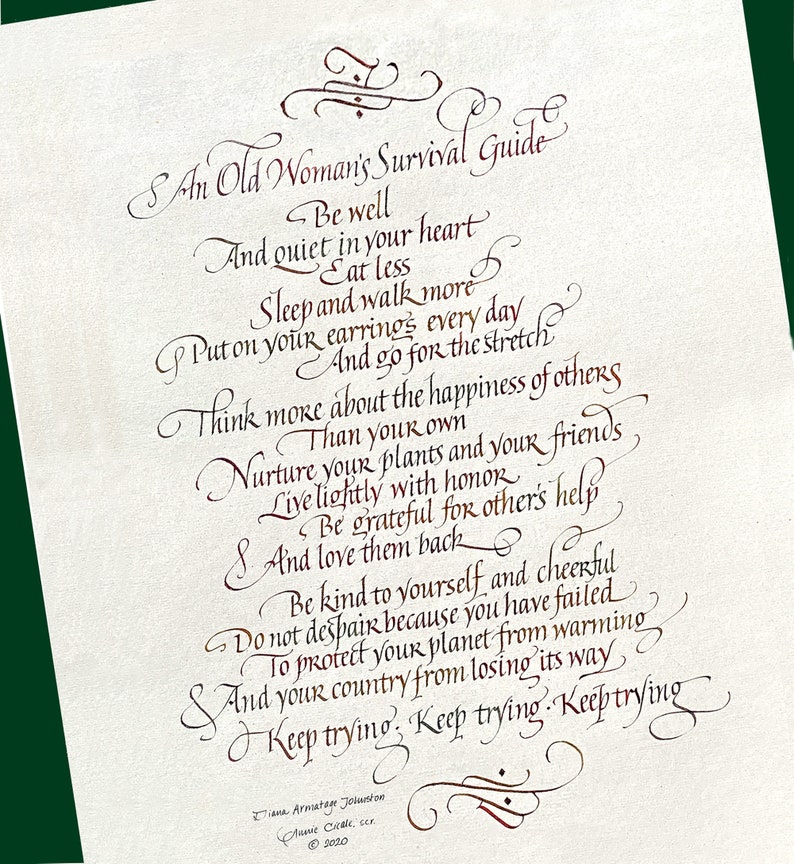 An Old Woman's Survival Guide
Be well
And quiet in your heart
Eat less
Sleep and walk more
Put on your earrings every day
And go for the stretch
Think more about the happiness of others
Than your own
Nurture your plants and your friends
Live lightly with honor
Be grateful for other's help
And love them back
Be kind to yourself and cheerful
Do not despair because you have failed
To protect your planet from warming
And your country from losing its way
Keep trying. Keep trying. Keep trying
Diana Armatage Johnston
Annie Cicale, scr.
© 2020